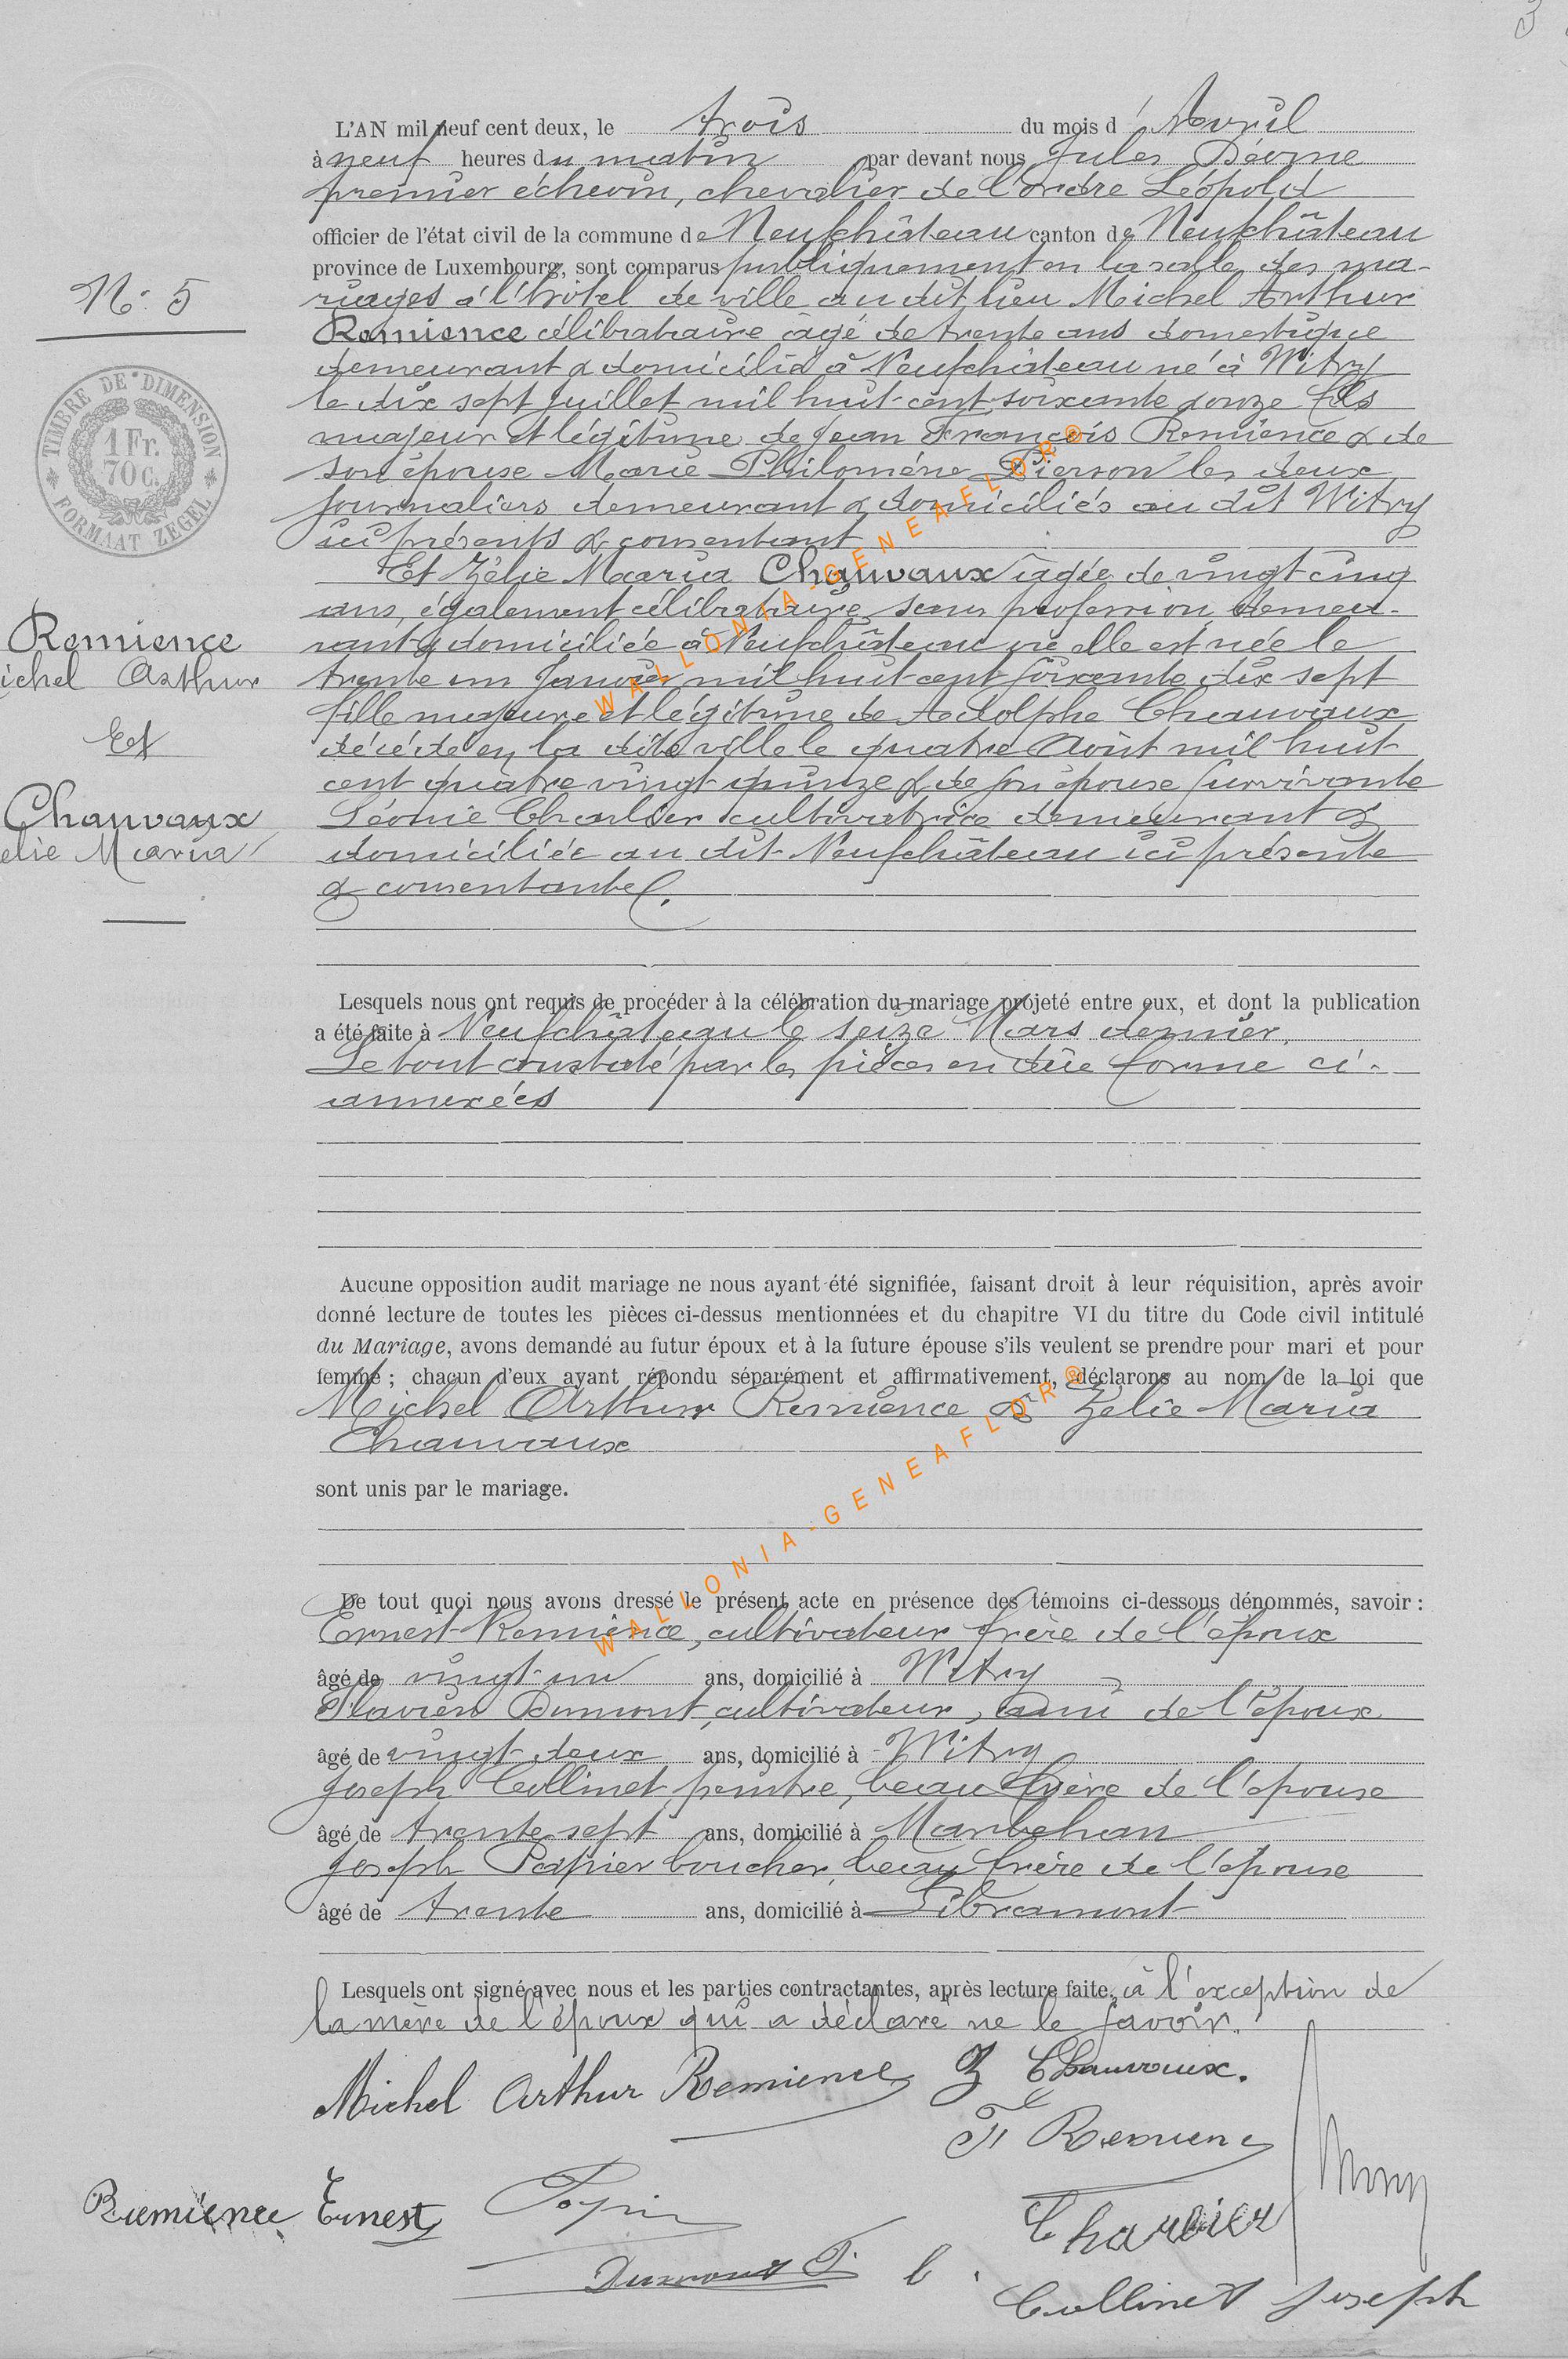 3
L'AN mil neuf cent deux, le trois du mois d'Avril
à neuf heures du matin par devant nous Jules
premier échevin, chevalier de l'ordre Léopold
officier de l'état civil de la commune de Neufchâteau canton de Neufchâteau
province de Luxembourg, sont comparus publiquement en la salle des ma-
riages à l'hôtel de ville au dit lieu Michel Arthur
Remience célibataire âgé de trente ans domestique
demeurant & domicilié à Neufchâteau né à Witry
le dix sept juillet mil huit cent soixante & onze fils
majeur et légitime de Jean François Remience & de
son épouse Marie Philomène Pierson les deux
journaliers demeurant & domiciliés au dit Witry
ici présents & consentant
Et Zélie Maria Chauvaux âgée de vingt cinq
ans, également célibataire, sans profession, demeu-
rant & domiciliée à Neufchâteau où elle est née le
trente un Janvier mil huit cent soixante dix sept
fille majeure et légitime de Adolphe Chauvaux
décédé en la dite ville le quatre Août mil huit
cent quatre vingt quinze & de son épouse survivante
Léonie Charlier cultivatrice demeurant &
domiciliée au dit Neufchâteau ici présente
& consentante.
N° 5
TIMBRE DE DIMENSION
1 Fr.
70 c.
FORMAAT ZEGEL
Remience
ichel Arthur
Et
Chauvaux
elie Maria
Lesquels nous ont requis de procéder à la célébration du mariage projeté entre eux, et dont la publication
a été faite à Neufchâteau le seize Mars dernier.
Le tout constaté par les pièces en dûe forme ci-
annexées
Aucune opposition audit mariage ne nous ayant été signifiée, faisant droit à leur réquisition, après avoir
donné lecture de toutes les pièces ci-dessus mentionnées et du chapitre VI du titre du Code civil intitulé
du Mariage, avons demandé au futur époux et à la future épouse s'ils veulent se prendre pour mari et pour
femme ; chacun d'eux ayant répondu séparément et affirmativement, déclarons au nom de la loi que
Michel Arthur Remience & Zélie Maria
Chauvaux
sont unis par le mariage.
De tout quoi nous avons dressé le présent acte en présence des témoins ci-dessous dénommés, savoir :
Ernest Remience, cultivateur frère de l'époux
âgé de vingt-un ans, domicilié à Witry
Flavien Dumont, cultivateur, ami de l'époux
âgé de vingt-deux ans, domicilié à Witry
Joseph Collinet, peintre, beau frère de l'épouse
âgé de trente sept ans, domicilié à Marbehan
Joseph Papier boucher, beau frère de l'épouse
âgé de trente ans, domicilié à Libramont
Lesquels ont signé avec nous et les parties contractantes, après lecture faite, à l'exception de
la mère de l'époux qui a déclaré ne le savoir.
Michel Arthur Remience Z Chauvaux.
F Remience
Remience Ernest
Charlier
Dumont F.
Collinet Joseph
WALLONIA-GENEAFLOR®
WALLONIA-GENEAFLOR®